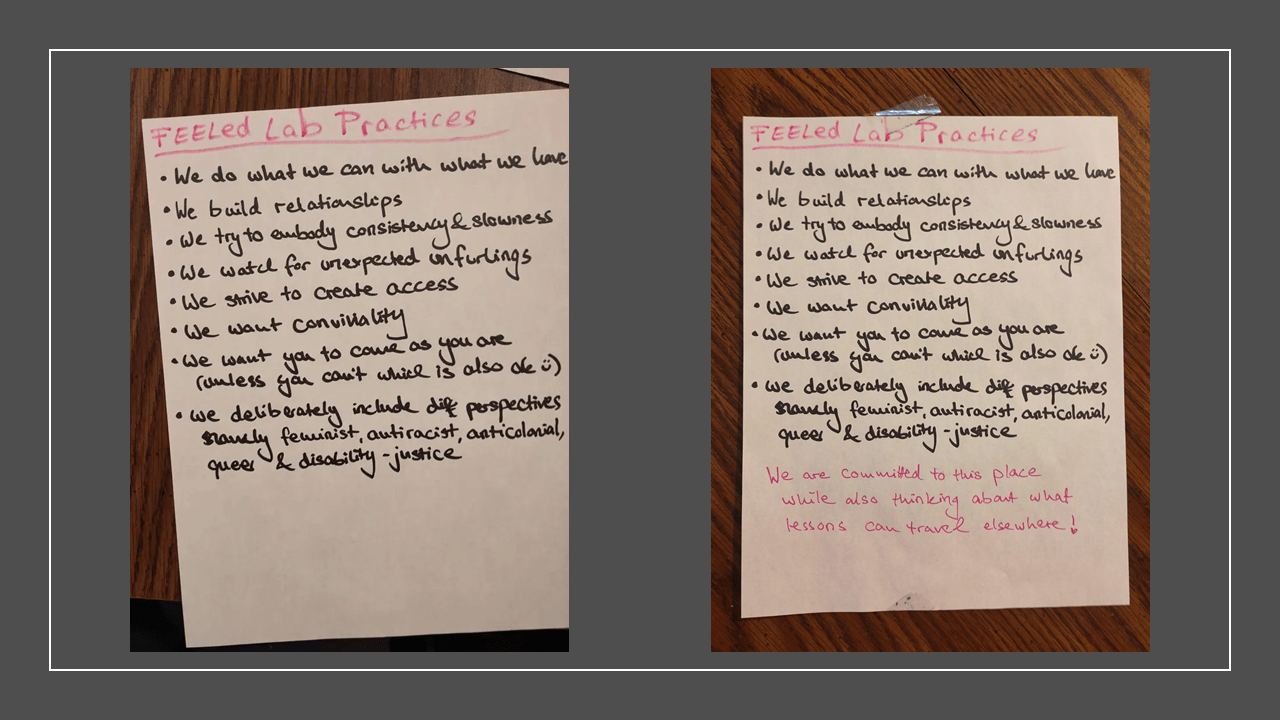 FEELed Lab Practices
• We do what we can with what we have
• We build relationships
• We try to embody consistency & slowness
• We watch for unexpected unfurlings
• We strive to create access
• We want conviviality
• We want you to come as you are
(unless you can't which is also ok ☺)
• We deliberately include diff perspectives
namely feminist, antiracist, anticolonial,
queer & disability-justice
FEELed Lab Practices
• We do what we can with what we have
• We build relationships
• We try to embody consistency & slowness
• We watch for unexpected unfurlings
• We strive to create access
• We want conviviality
• We want you to come as you are
(unless you can't which is also ok ☺)
• We deliberately include diff perspectives
namely feminist, antiracist, anticolonial,
queer & disability-justice
We are committed to this place
while also thinking about what
lessons can travel elsewhere!